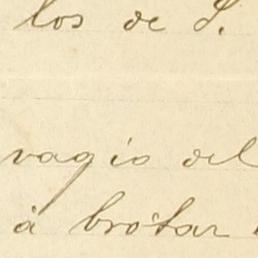 los de S.
vagio del
á brotar